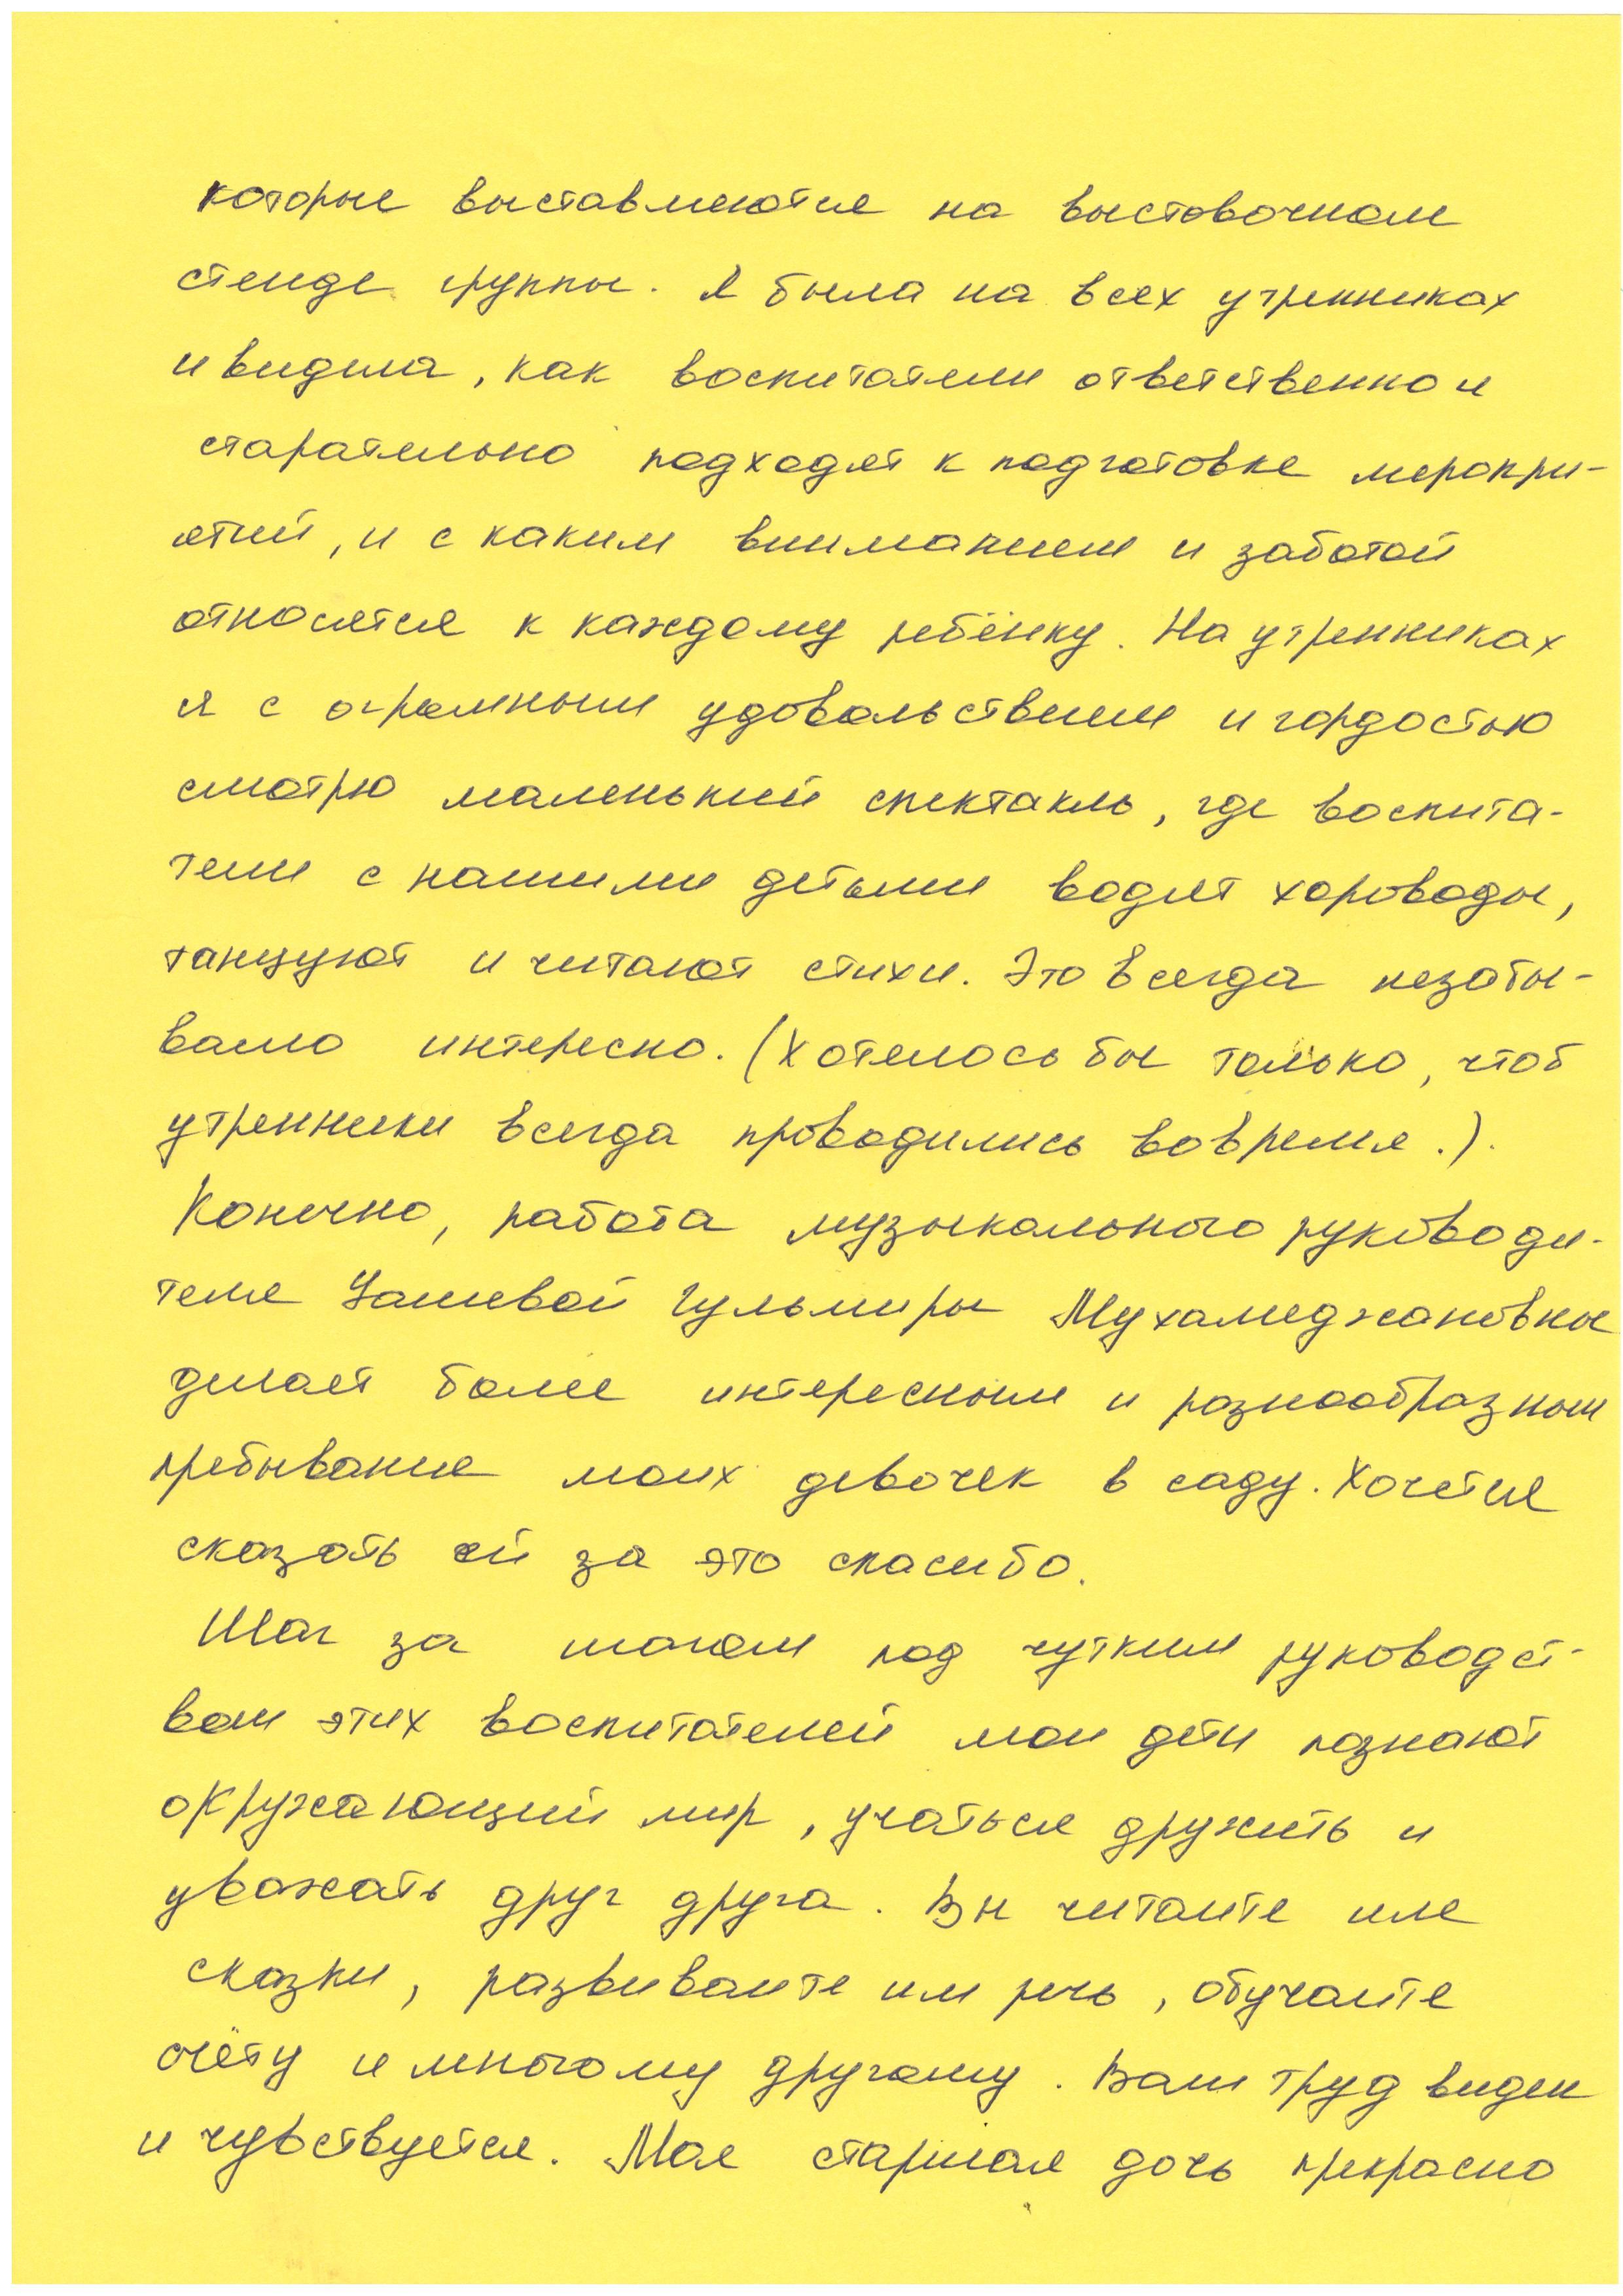 которые выставляются на выстовочном
стенде группы. Я была на всех утренниках
и видила, как воспитатели ответственно и
старательно подходят к подготовке меропри-
ятий, и с каким вниманием и заботой
относятся к каждому ребёнку. На утренниках
я с огромным удовольствием и гордостью
смотрю маленький спектакль, где воспита-
тели с нашими детьми водят хороводы,
танцуют и читают стихи. Это всегда незабы-
ваемо интересно. (Хотелось бы только, чтоб
утренники всегда проводились вовремя.).
Конечно, работа музыкального руководи-
теля Гульмиры Мухамеджановны
делает более интересным и разнообразным
пребывание моих девочек в саду. Хочется
сказать ей за это спасибо.
Шаг за шагом под чутким руководст-
вом этих воспитателей мои дети познают
окружающий мир, учаться дружить и
уважать друг друга. Вы читаите им
сказки, развиваите им речь, обучаите
счёту и многому другому. Ваш труд виден
и чувствуется. Моя старшая дочь прекрасно